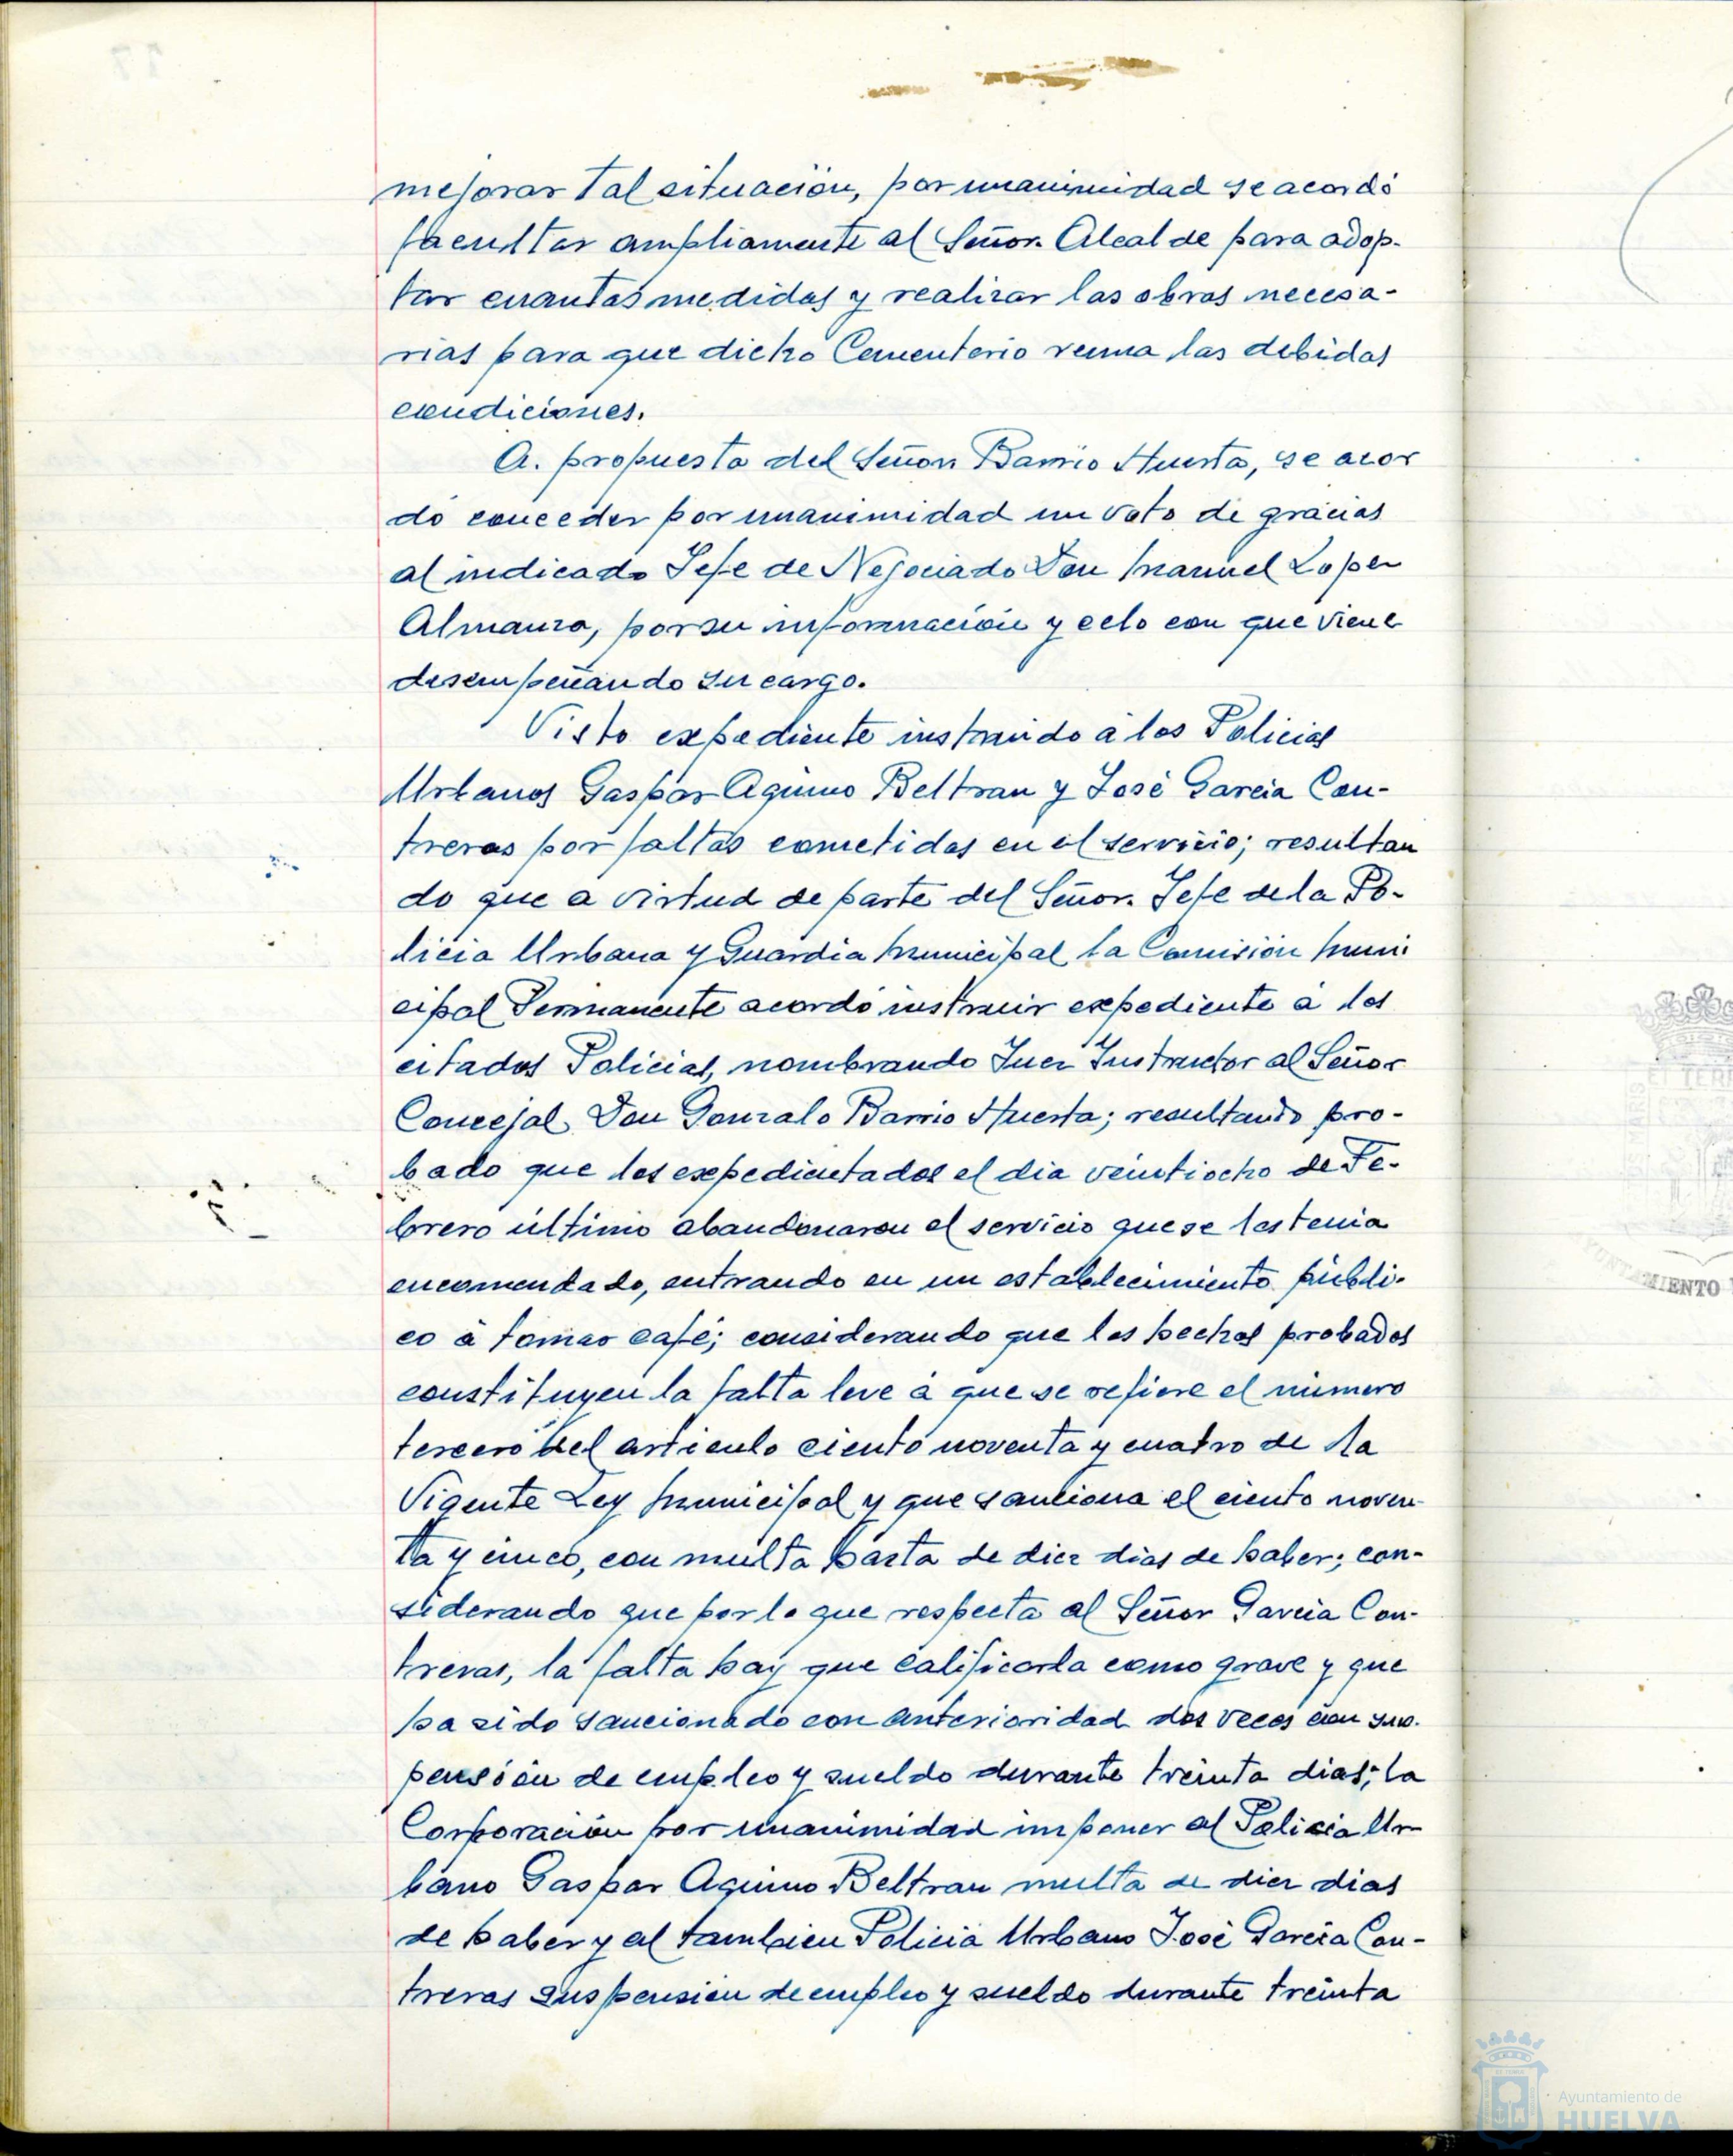 mejorar tal situación, por unanimidad se acordó
facultar ampliamente al Señor Alcalde para adop-
tar cuantas medidas y realizar las obras necesa-
rias para que dicho Cementerio reuna las debidas
condiciones.
A. propuesta del Señor Barrio Huerta, se acor
dó conceder por unanimidad un voto de gracias
al indicado Jefe de Negociado Don Manuel Lopez
Almanza, por su información y celo con que viene
desempeñando su cargo.
Visto expediente instruido á los Policias
Urbanos Gaspar Aquino Beltran y José Garcia Con-
treras por faltas cometidas en el servicio; resultan
do que a virtud de parte del Señor Jefe de la Po-
licia Urbana y Guardia Municipal la Comisión Muni
cipal Permanente acordó instruir expediente á los
citados Policias, nombrando Juez Instructor al Señor
Concejal Don Gonzalo Barrio Huerta; resultando pro-
bado que los expedientados el dia veintiocho de Fe-
brero último abandonaron el servicio que se les tenia
encomendado, entrando en un establecimiento públi-
co á tomar café; considerando que los hechos probados
constituyen la falta leve á que se refiere el número
tercero del articulo ciento noventa y cuatro de la
Vigente Ley Municipal y que sanciona el ciento noven-
ta y cinco, con multa hasta de diez dias de haber; con-
siderando que por lo que respecta al Señor Garcia Con-
treras, la falta hay que calificarla como grave y que
ha sido sancionado con anterioridad dos veces con sus-
pensión de empleo y sueldo durante treinta dias; la
Corporación por unanimidad imponer al Policia Ur
bano Gaspar Aquino Beltran multa de diez dias
de haber y al tambien Policia Urbano José Garcia Con-
treras suspensión de empleo y sueldo durante treinta
MIENTO
Ayuntamiento de
HUELVA